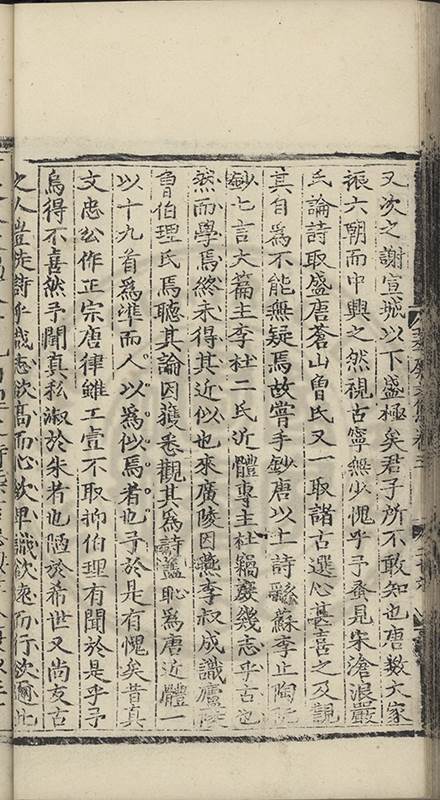 又次之謝宣城以下盛極矣君子所不敢知也唐數大家
振六朝而中興之然視古寧無少愧乎予蚤見宋滄浪嚴
氏論詩取盛唐蒼山曾氏又一取諸古選心甚喜之及觀
其自為不能無疑焉故嘗手鈔唐以上詩繇蘇李止陶
鈔七言大篇主李杜二氏近體專主杜竊庶幾志乎古也
然而學焉終未得其近似也來廣陵因燕李叔成識廬陵
曾伯理氏焉聽其論因獲悉觀其為詩蓋恥為唐近體一
以十九首為準而人以為似焉者也予於是有愧矣昔真
文忠公作正宗唐律雖工壹不取抑伯理有聞於是乎予
烏得不喜然予聞真私淑於朱者也陋於希世又尚友古
之人豈徒詩乎哉志欲高而心欲卑識欲遠而行欲邇此